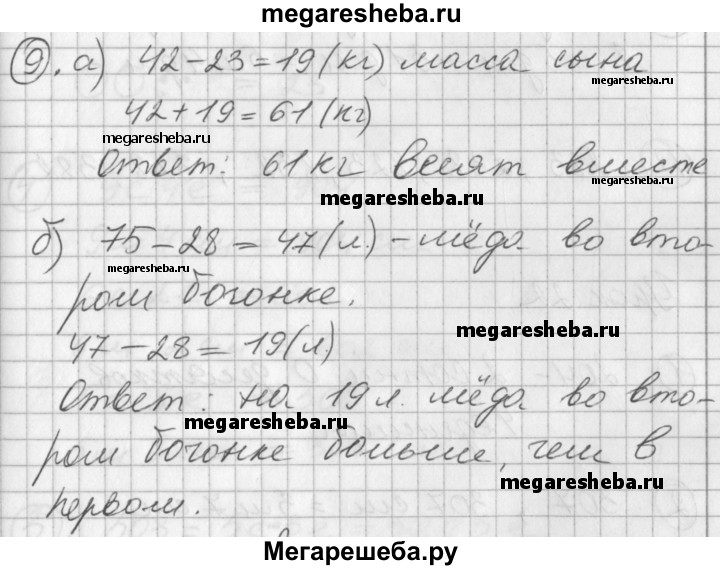 megaresheba.ru
9. а) 42-23=19(кг) масса сына
megaresheba.ru
42+19=61(кг)
megaresheba.ru
Ответ: 61кг весят вместе
megaresheba.ru
б) 75-28=47(л.)-мёда во вто-
megaresheba.ru
ром богонке.
megaresheba.ru
47-28=19(л)
Ответ: на 19л. мёда во вто-
megaresheba.ru
ром богонке больше, чем в
megaresheba.ru
первом.
Мегарешеба.ру